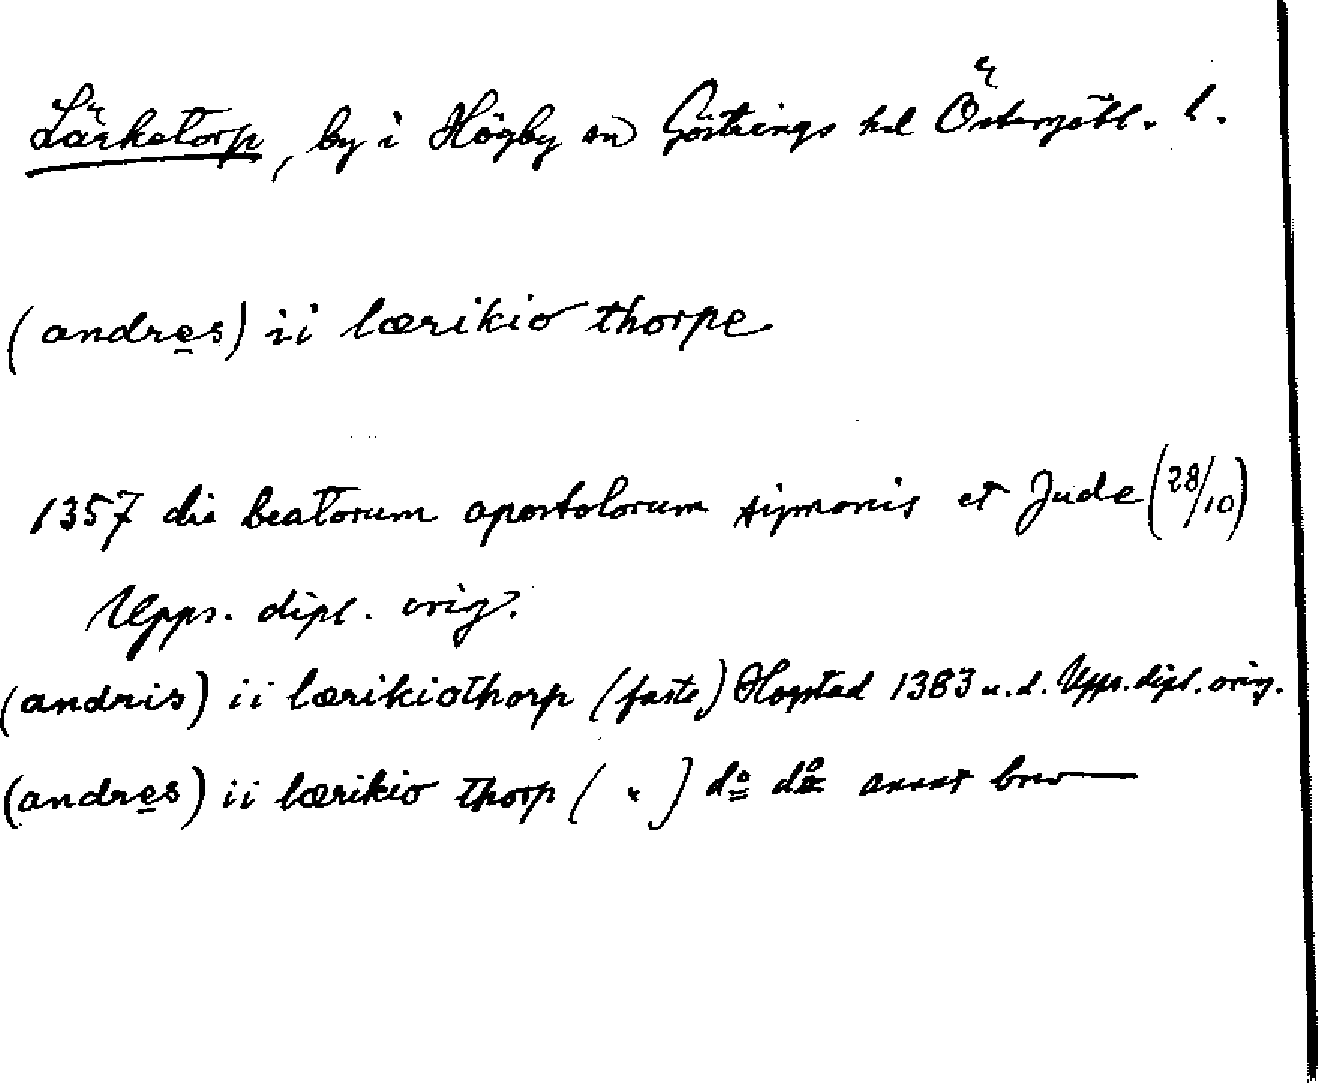 Lärketorp, by i Högby sn Göstrings hd Östergötl. l.
(andres) ii lærikio thorpe
1357 die beatorum apostolorum symonis et Jude (28/10)
Upps. dipl. orig.
(andris) ii lærikiothorp (faste) Hogstad 1383 u. d. Upps. dipl. orig.
(andres) ii lærikio thorp ( " ) do do annat brev